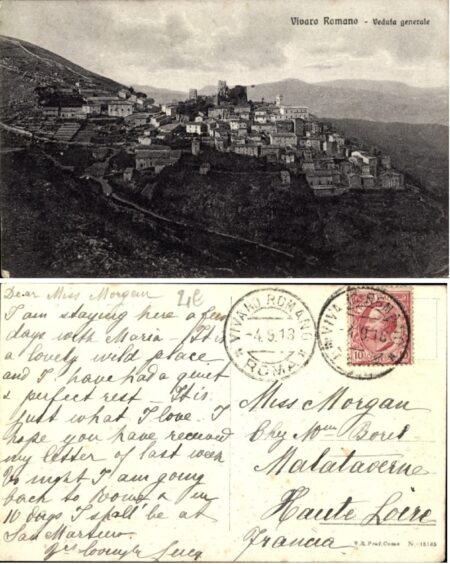 Vivaro Romano - Veduta generale
Dear Miss Morgan
I am staying here a few
days with Maria - It is
a lovely wild place
and I have had a quiet
& perfect rest - It is
just what I love. I
hope you have received
my letter of last week
To night I am going
back to Rome & in
10 days I shall be at
San Martino
VIVARO ROMANO
4.9.13
ROMA
10
Miss Morgan
Chez Mme Borel
Malataverne
Haute Loire
Francia
V.R. Prof. Como N.-15185